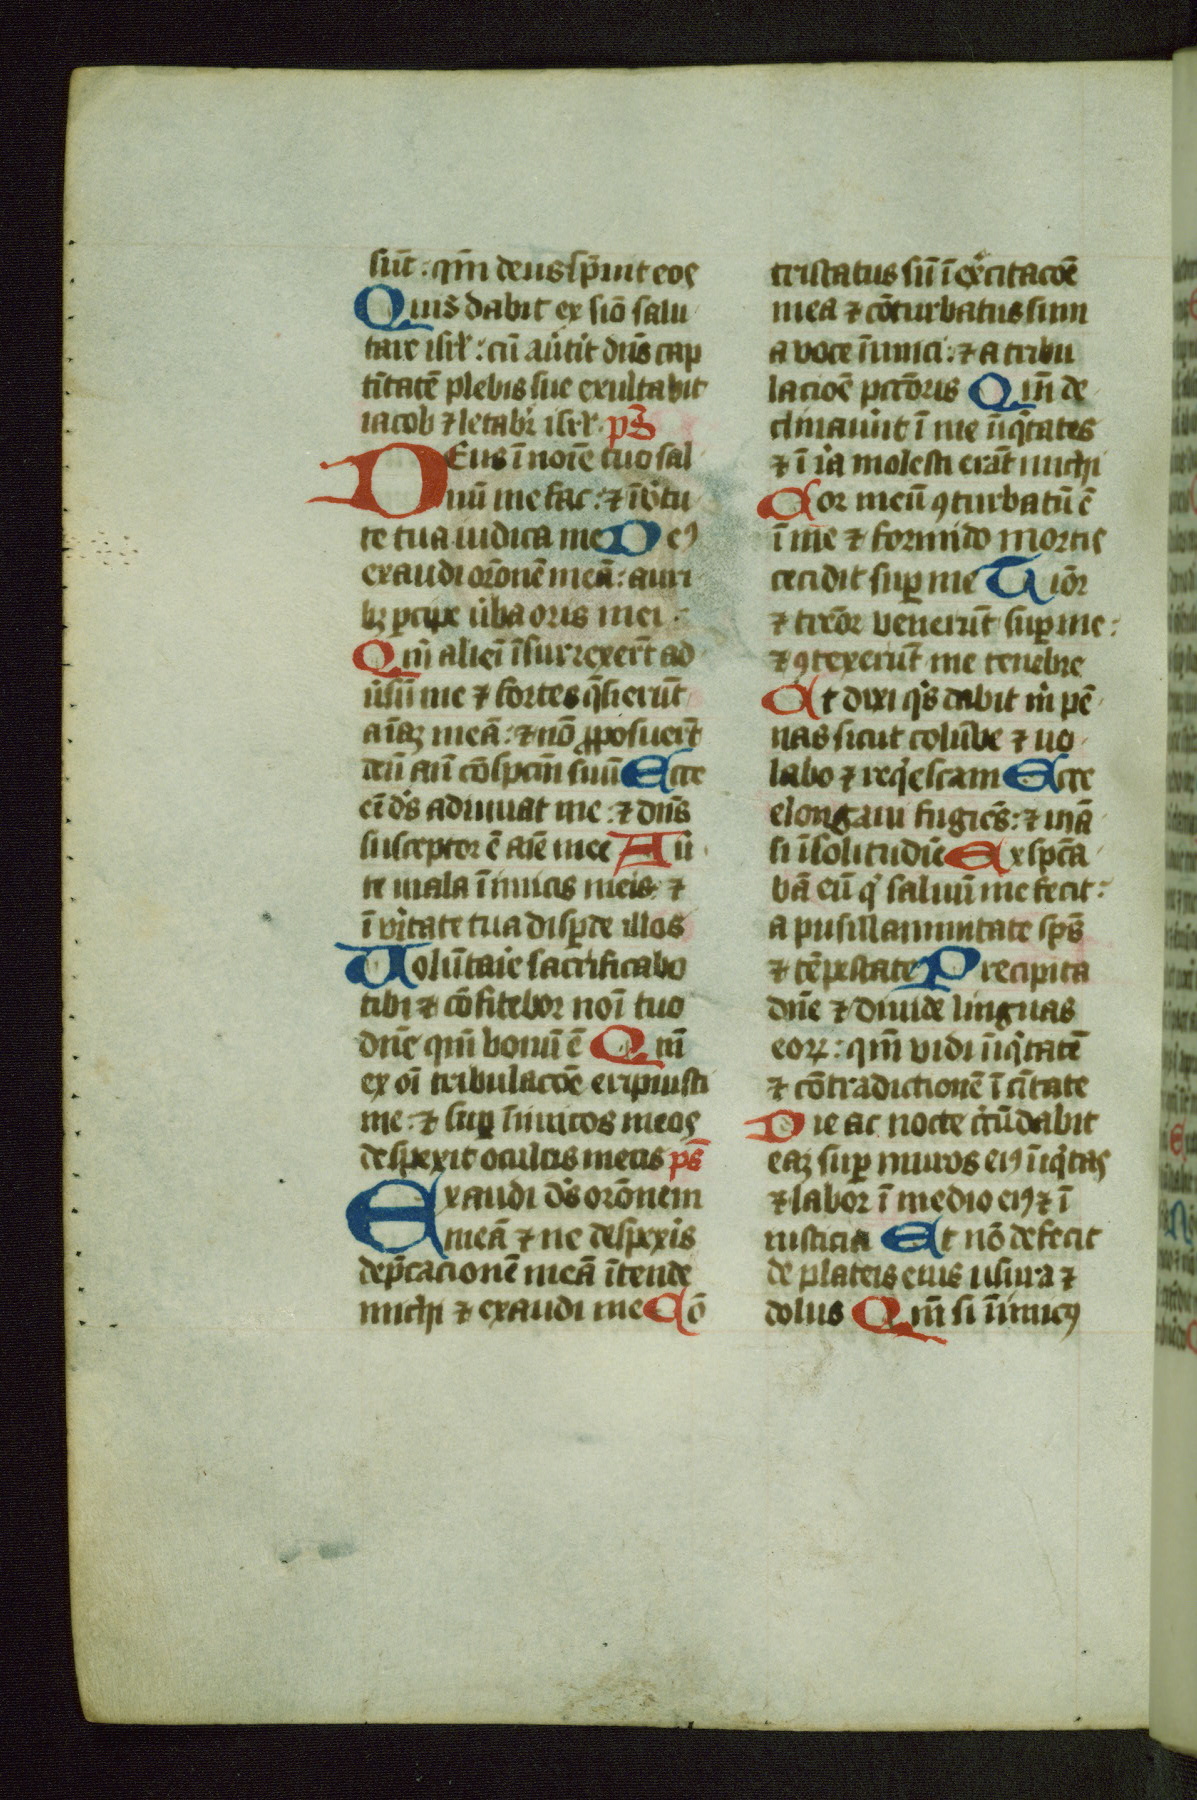 sūt: qm̄ deus sp̄uit eos
Quis dabit ex siō salu
tare isrl̄: cū aūtit dn̄s cap
tītatē plebis sue exultabit
iacob ⁊ letabr̄ isrl̄. ps̄
Deus ī noīe tuo sal
uū me fac: ⁊ ī v̄tu
te tua iudica me Deꝰ
exaudi orōnē meā: auri
bꝫ ꝑcipe ūba oris mei:
Qm̄ alieī īsurrexer̄t ad
ūsū me ⁊ fortes q̄sierūt
aīaꝫ meā: ⁊ nō ꝓposuer̄t
deū aū cōspcm̄ suū Ecce
eī ds̄ adiuuat me: ⁊ dn̄s
susceptor ē aīe mee Aū
te mala īimicis meis: ⁊
ī v̄itate tua disꝑde illos
Uolūtarie sacrificabo
tibi ⁊ cōfitebor noī tuo
dn̄e qm̄ bonū ē Qm̄
ex oī tribulacōe eripuisti
me: ⁊ suꝑ īimicos meos
despexit oculus meus ps̄
Exaudi ds̄ orōnem
meā ⁊ ne despexis̄
dep̄cacionē meā ītende
michi ⁊ exaudi me Cō
tristatus sū ī ex̄citacōe
mea ⁊ cōturbatus sum
a voce īimici: ⁊ a tribu
lacioē pctōris Qm̄ de
clinauūt ī me īiq̄tates
⁊ ī ira molesti erāt michi
Cor meū ꝯturbatū ē
ī me ⁊ formido mortis
cecidit suꝑ me Timōr
⁊ tremōr venerūt suꝑ me:
⁊ ꝯtexerūt me tenebre
Et dixi qͥs dabit m̄ pē
nas sicut colūbe ⁊ uo
labo ⁊ reqͥescam Ecce
elongaui fugiēs: ⁊ māsi
ī solitudīe Exspcta
bā eū qͥ saluū me fecit:
a pusillanimitate sps̄
⁊ tēpestate Precipita
dn̄e ⁊ diuide linguas
eoꝝ: qm̄ vidi īiq̄tatē
⁊ cōtradictionē ī cītate
Die ac nocte cͥrcūdabit
eaꝫ suꝑ muros eiꝰ īiq̄tas
⁊ labor ī medio eiꝰ ⁊ ī
iusticia Et nō defecit
de plateis eius usura ⁊
dolus Qm̄ si īimicꝰ